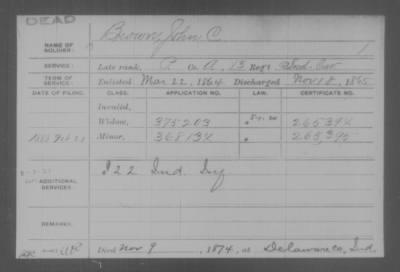 DEAD
NAME OF SOLDIER: Brown, John C.
SERVICE: Late rank, P Co. A, 13 Reg't Cav
TERM OF SERVICE: Enlisted Mar 22, 1864 Discharged Nov 18, 1865
DATE OF FILING. CLASS. APPLICATION NO. LAW. CERTIFICATE NO.
Invalid,
Widow, 375203 265394
Minor, 368134 265395
ADDITIONAL SERVICES: I 22 Ind. Inf
REMARKS:
Died Nov 9, 1874, at Delaware Co, Ind.